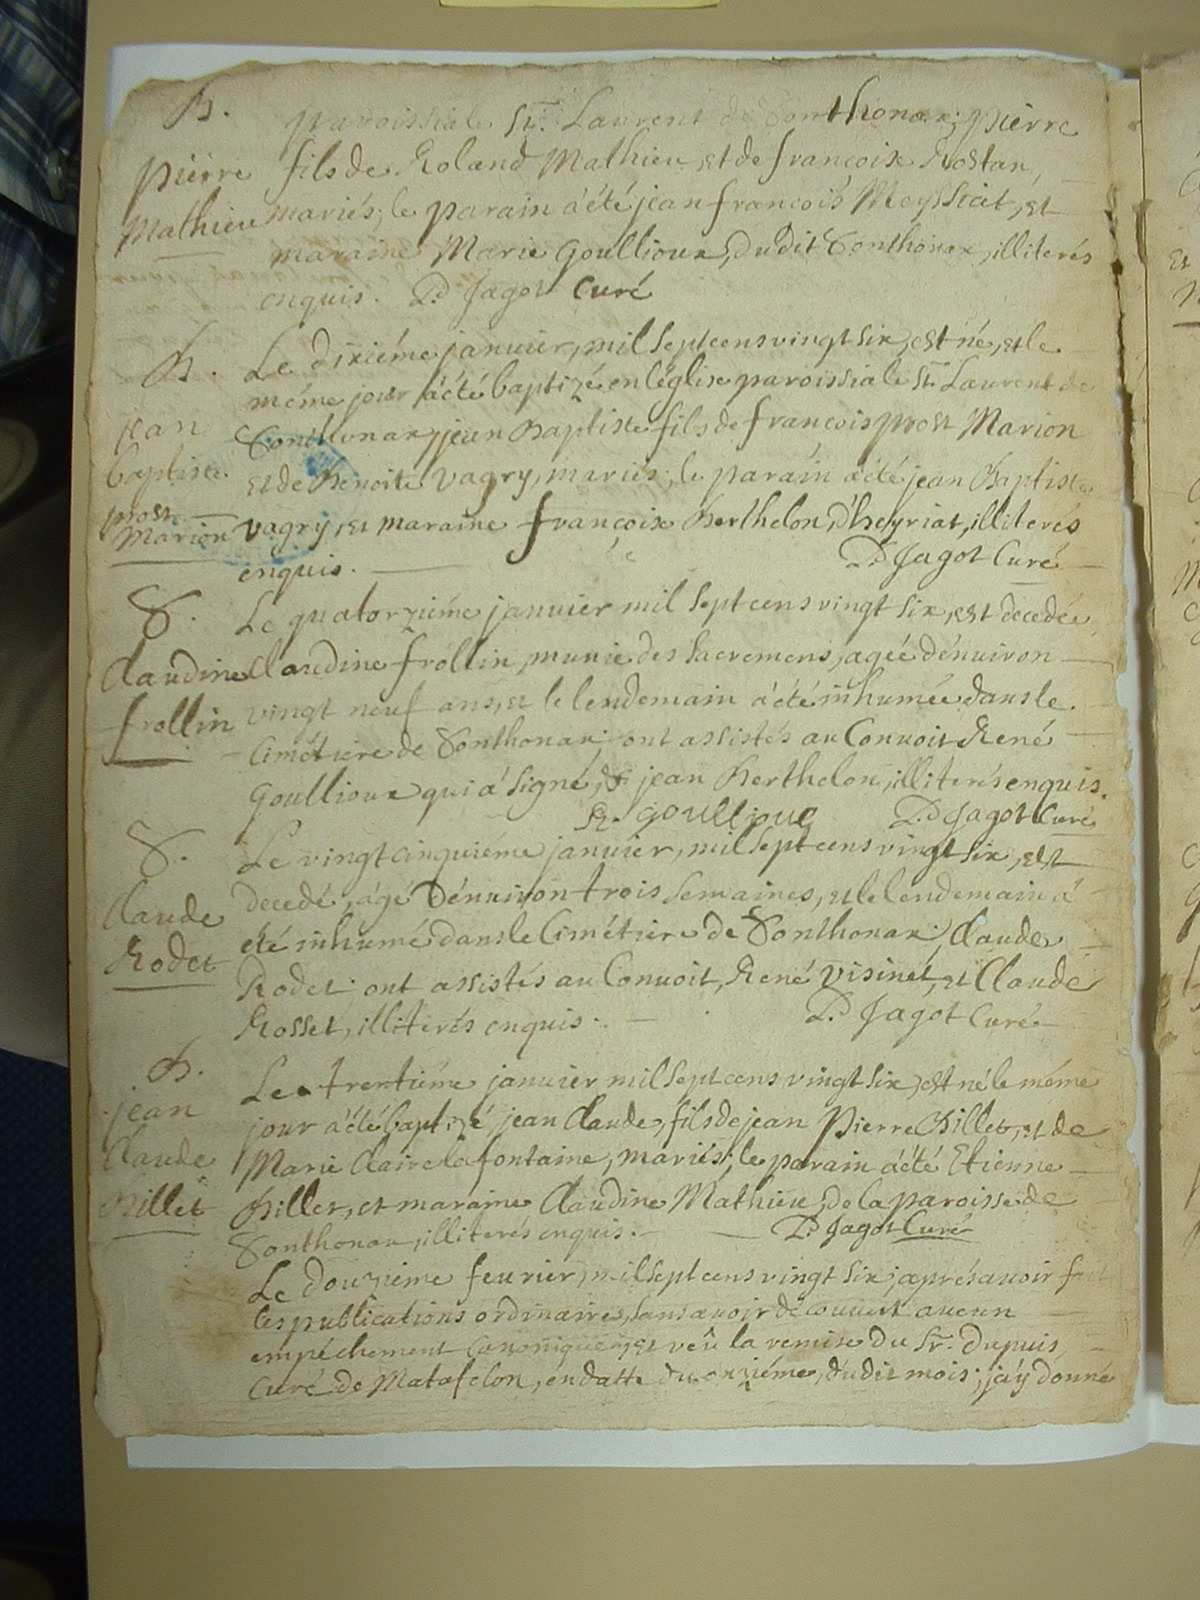 B.
Pierre
Mathieu
paroissiale St. Laurent de Sonthonax; pierre
fils de Roland Mathieu, et de françoise Rostan,
mariés; le parain a été jean françois Meyssiat, et
maraine Marie Goullioux, dudit Sonthonax, illiterés
enquis. D. Jagot Curé
B.
jean
baptiste
prost
Marion
Le dixiéme janvier, mil sept cens vingt six, est né, et le
méme jour a été baptizé en l'église paroissiale St. Laurent de
Sonthonax, jean Baptiste fils de françois prost Marion
et de Benoite Vagry, mariés; le parain a été jean Baptiste
vagry, et maraine françoise Berthelon, d'heyriat, illiterés
enquis. D. Jagot Curé
S.
Claudine
frollin
Le quatorziéme janvier mil sept cens vingt six, est decedée
Claudine frollin, munie des sacremens, agée d'énuiron
vingt neuf ans, et le lendemain a été inhumée dans le
Cimétiere de Sonthonax; ont assistés au Convoit René
Goullioux qui a signé, & jean Berthelon, illiterés enquis.
R. goullioux D. Jagot Curé
S.
Claude
Rodet
Le vingtcinquiéme janvier, mil sept cens vingt six, est
decedé, agé d'énuiron trois semaines, et le lendemain a
été inhumé dans le Cimétiere de Sonthonax; Claude
Rodet: ont assistés au Convoit, René visinet, et Claude
Rosset, illiterés enquis. D. Jagot Curé
B.
jean
Claude
Billet
Le trentiéme janvier mil sept cens vingt six, est né le méme
jour a été baptizé, jean Claude, fils de jean Pierre Billet, et de
Marie Claire lafontaine, mariés; le parain a été Etienne
Billet, et maraine Claudine Mathieu, de la paroisse de
Sonthonax, illiterés enquis. D. Jagot Curé
Le douziéme feurier, mil sept cens vingt six, aprés avoir fait
les publications ordinaires, sans avoir découvert aucun
empéchement Canonique, et veû la remise du Sr. Dupuis
Curé de Matafelon, en datte du onziéme, dudit mois; j'ay donné